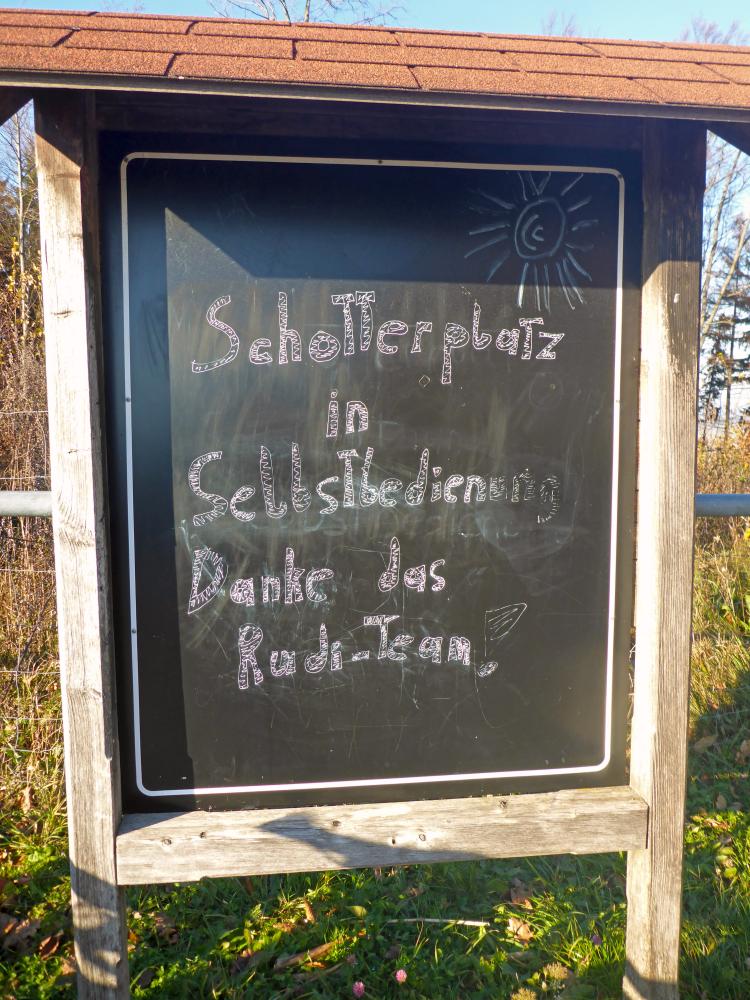 Schotterplatz
in
Selbstbedienung
Danke das
Rudi-Team!